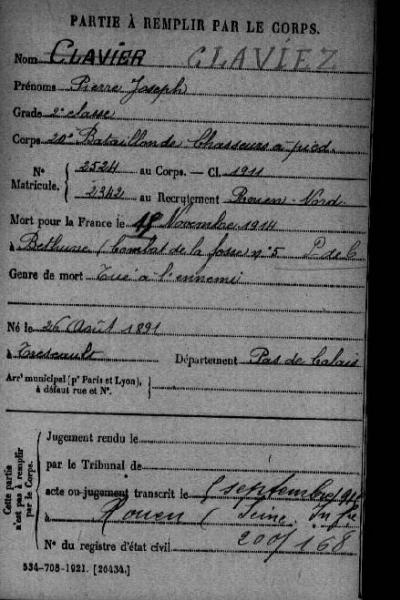 PARTIE À REMPLIR PAR LE CORPS.
Nom CLAVIER CLAVIEZ
Prénoms Pierre Joseph
Grade 2e classe
Corps 20e Bataillon de Chasseurs à pied.
N° Matricule. { 2524 au Corps. — Cl. 1911
2342 au Recrutement Rouen - Nord.
Mort pour la France le 15 Novembre 1914
à Bethune (Combat de la fosse n° 5 P. de C
Genre de mort Tué à l'ennemi
Né le 26 Août 1891
à Trescault Département Pas de Calais
Arrt municipal (pr Paris et Lyon), à défaut rue et N°.
Cette partie n'est pas à remplir par le Corps.
Jugement rendu le
par le Tribunal de
acte ou jugement transcrit le 5 septembre
à Rouen (Seine Infre
N° du registre d'état civil 200/168
534-708-1921. [26434.]